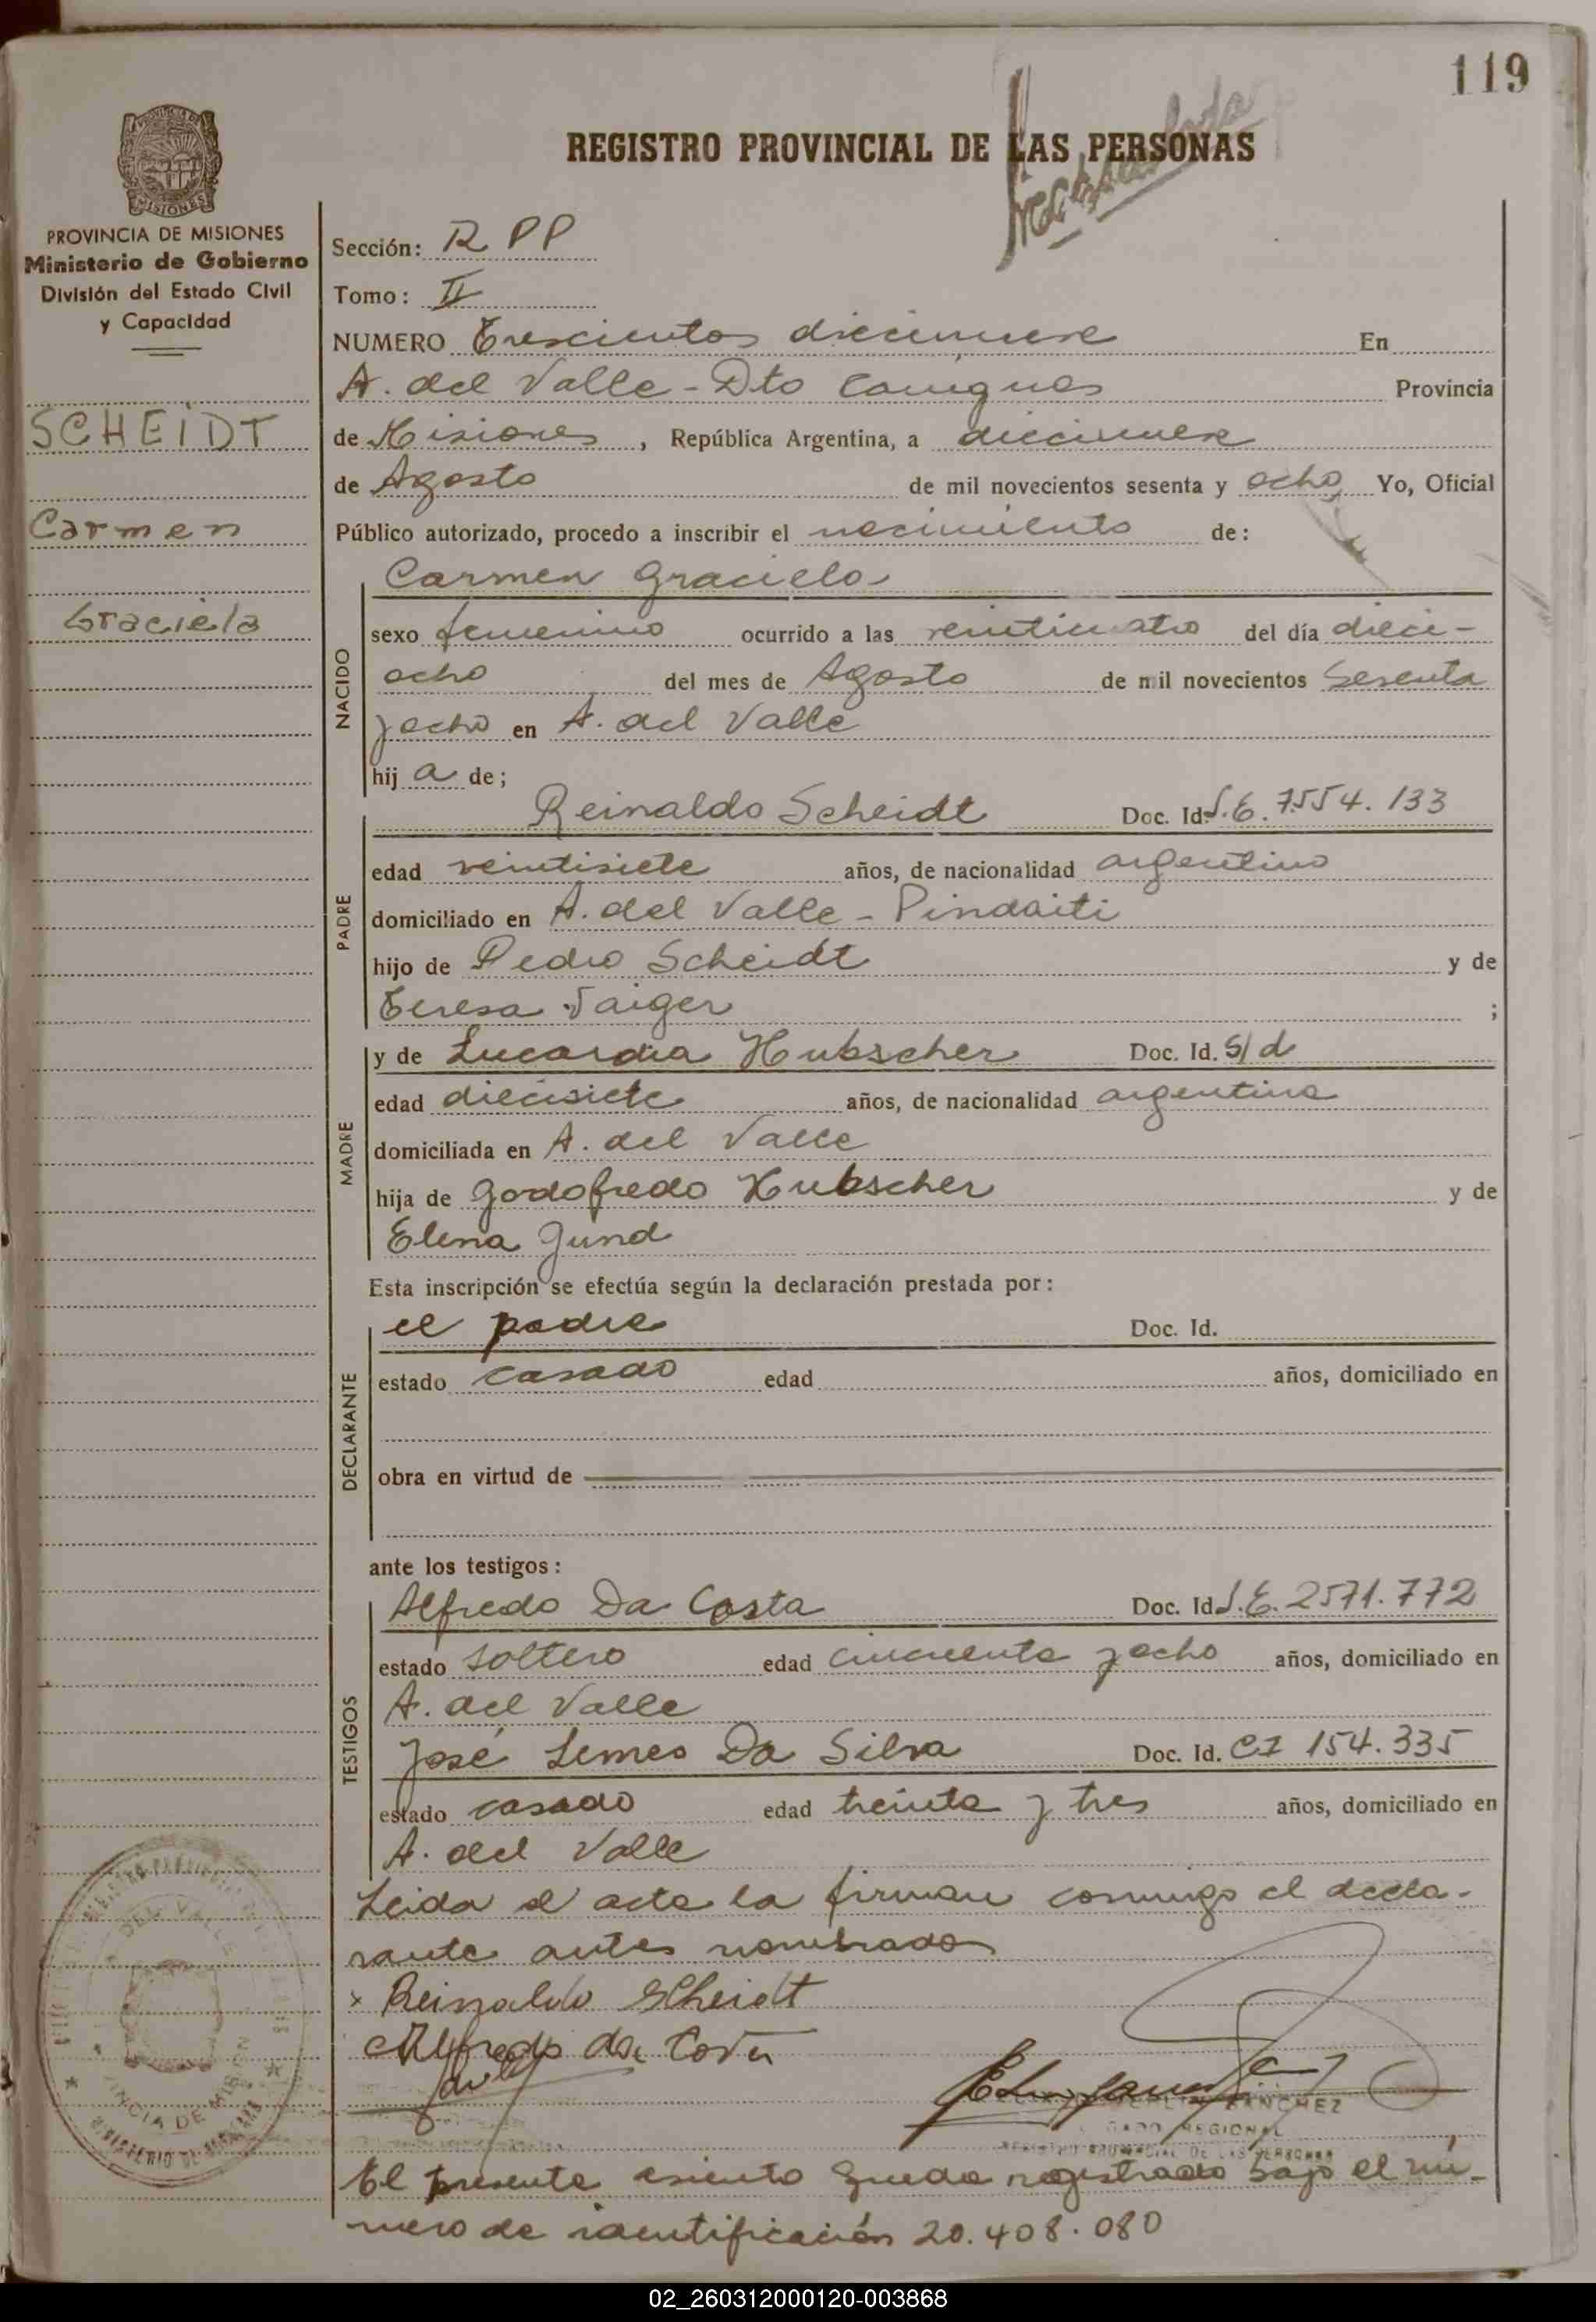 119
REGISTRO PROVINCIAL DE LAS PERSONAS
MISIONES
PROVINCIA DE MISIONES
Ministerio de Gobierno
División del Estado Civil
y Capacidad
SCHEIDT
Carmen
Graciela
Sección: R PP
Tomo: II
NUMERO Trescientos diecinueve En
A. del Valle - Dto Cainguas Provincia
de Misiones, República Argentina, a diecinueve
de Agosto de mil novecientos sesenta y ocho Yo, Oficial
Público autorizado, procedo a inscribir el nacimiento de:
Carmen Graciela
NACIDO
sexo femenino ocurrido a las veinticuatro del día dieci-
ocho del mes de Agosto de mil novecientos Sesenta
y ocho en A. del Valle
hij a de;
Reinaldo Scheidt Doc. Id. L.E. 7554.133
PADRE
edad veintisiete años, de nacionalidad argentino
domiciliado en A. del Valle - Pindaiti
hijo de Pedro Scheidt y de
Teresa Taiger ;
y de Lucardia Hubscher Doc. Id. S/d
MADRE
edad diecisiete años, de nacionalidad argentina
domiciliada en A. del Valle
hija de Godofredo Hubscher y de
Elena Jund
Esta inscripción se efectúa según la declaración prestada por:
el padre Doc. Id.
DECLARANTE
estado casado edad años, domiciliado en
obra en virtud de
ante los testigos:
Alfredo Da Costa Doc. Id. L.E. 2571.772
TESTIGOS
estado soltero edad cincuenta y ocho años, domiciliado en
A. del Valle
José Lemes Da Silva Doc. Id. CI 154.335
estado casado edad treinta y tres años, domiciliado en
A. del Valle
Leida el acta la firman conmigo el decla-
rante antes nombrado
x Reinaldo Scheidt
Alfredo da Costa
SANCHEZ
REGIONAL
REGISTRO PROVINCIAL DE LAS PERSONAS
DEL VALLE
PROVINCIA DE MISIONES
MINISTERIO DE GOBIERNO
El presente asiento queda registrado bajo el nú-
mero de identificación 20.408.080
02_260312000120-003868